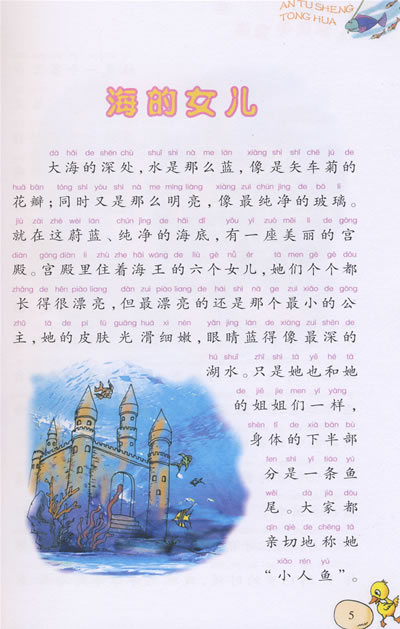 AN TU SHENG
TONG HUA
海的女儿
dà hǎi de shēn chù shuǐ shì nà me lán xiàng shì shǐ chē jú de
大海的深处，水是那么蓝，像是矢车菊的
huā bàn tóng shí yòu shì nà me míng liàng xiàng zuì chún jìng de bō li
花瓣；同时又是那么明亮，像最纯净的玻璃。
jiù zài zhè wèi lán chún jìng de hǎi dǐ yǒu yí zuò měi lì de gōng
就在这蔚蓝、纯净的海底，有一座美丽的宫
diàn gōng diàn lǐ zhù zhe hǎi wáng de liù gè nǚ ér tā men gè gè dōu
殿。宫殿里住着海王的六个女儿，她们个个都
zhǎng de hěn piào liang dàn zuì piào liang de hái shì nà ge zuì xiǎo de gōng
长得很漂亮，但最漂亮的还是那个最小的公
zhǔ tā de pí fū guāng huá xì nèn yǎn jīng lán de xiàng zuì shēn de
主，她的皮肤光滑细嫩，眼睛蓝得像最深的
hú shuǐ zhǐ shì tā yě hé tā
湖水。只是她也和她
de jiě jie men yí yàng
的姐姐们一样，
shēn tǐ de xià bàn bù
身体的下半部
fen shì yì tiáo yú
分是一条鱼
wěi dà jiā dōu
尾。大家都
qīn qiè de chēng tā
亲切地称她
xiǎo rén yú
“小人鱼”。
5